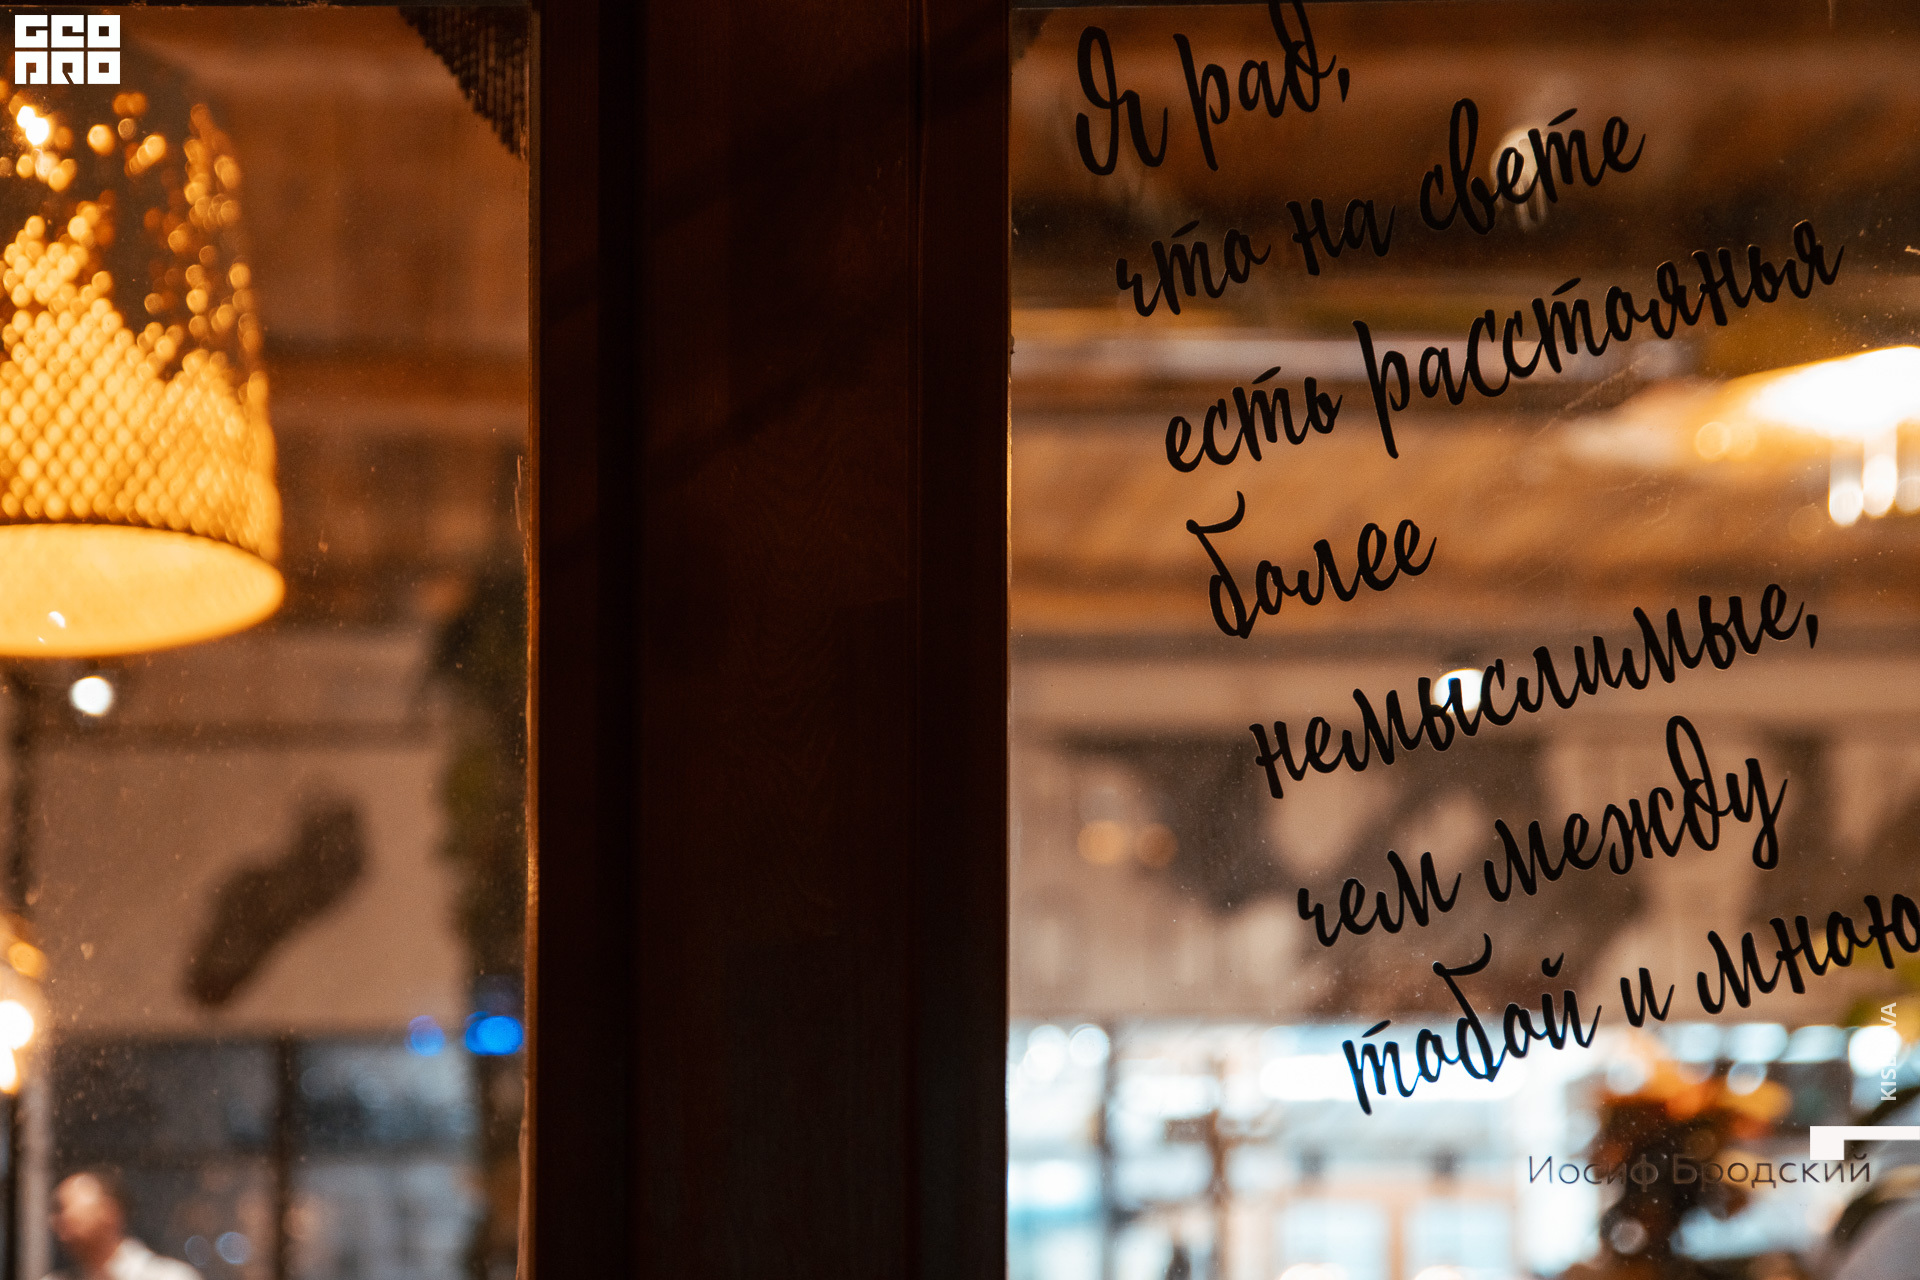 GEO
PRO
Я рад,
что на свете
есть расстоянья
более
немыслимые,
чем между
тобой и мною
Иосиф Бродский